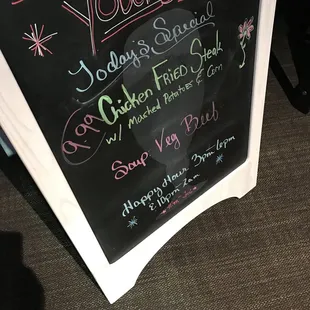 Today's Special
9.99 Chicken Fried Steak
w/ Mashed Potatoes & Corn
Soup Veg Beef
Happy Hour 3pm-6pm
& 10pm-2am